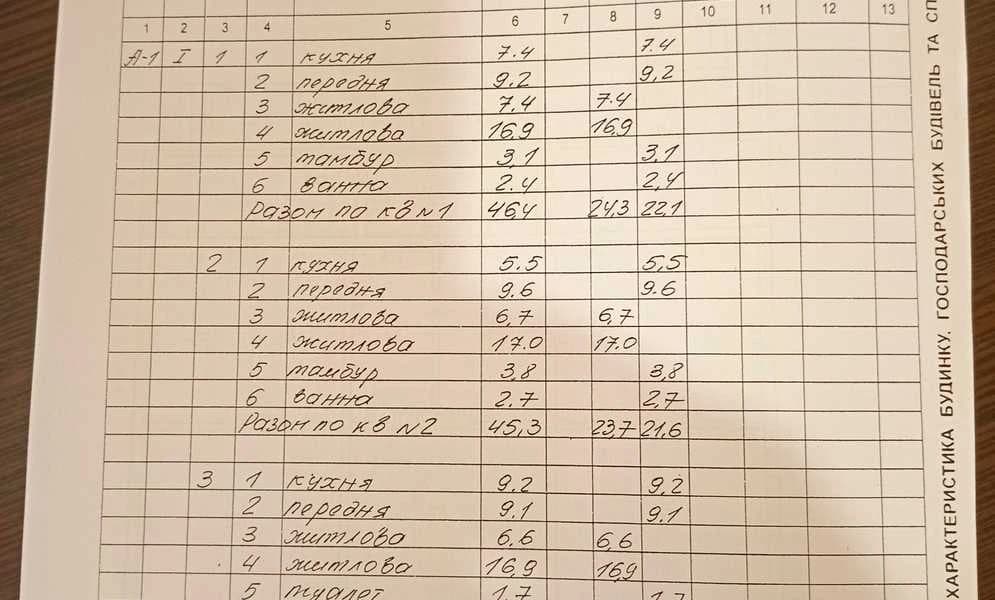 1 2 3 4 5 6 7 8 9 10 11 12 13
А-1 I 1 1 кухня 7.4 7.4
2 передня 9.2 9,2
3 житлова 7.4 7.4
4 житлова 16,9 16,9
5 тамбур 3,1 3,1
6 ванна 2.4 2,4
Разом по кв №1 46,4 24,3 22,1
2 1 кухня 5.5 5,5
2 передня 9.6 9.6
3 житлова 6,7 6,7
4 житлова 17.0 17.0
5 тамбур 3,8 3,8
6 ванна 2.7 2,7
Разом по кв №2 45,3 23,7 21,6
3 1 кухня 9.2 9,2
2 передня 9.1 9.1
3 житлова 6.6 6,6
4 житлова 16,9 169
5 туалет 1.7 1.7
ХАРАКТЕРИСТИКА БУДИНКУ, ГОСПОДАРСЬКИХ БУДІВЕЛЬ ТА СП